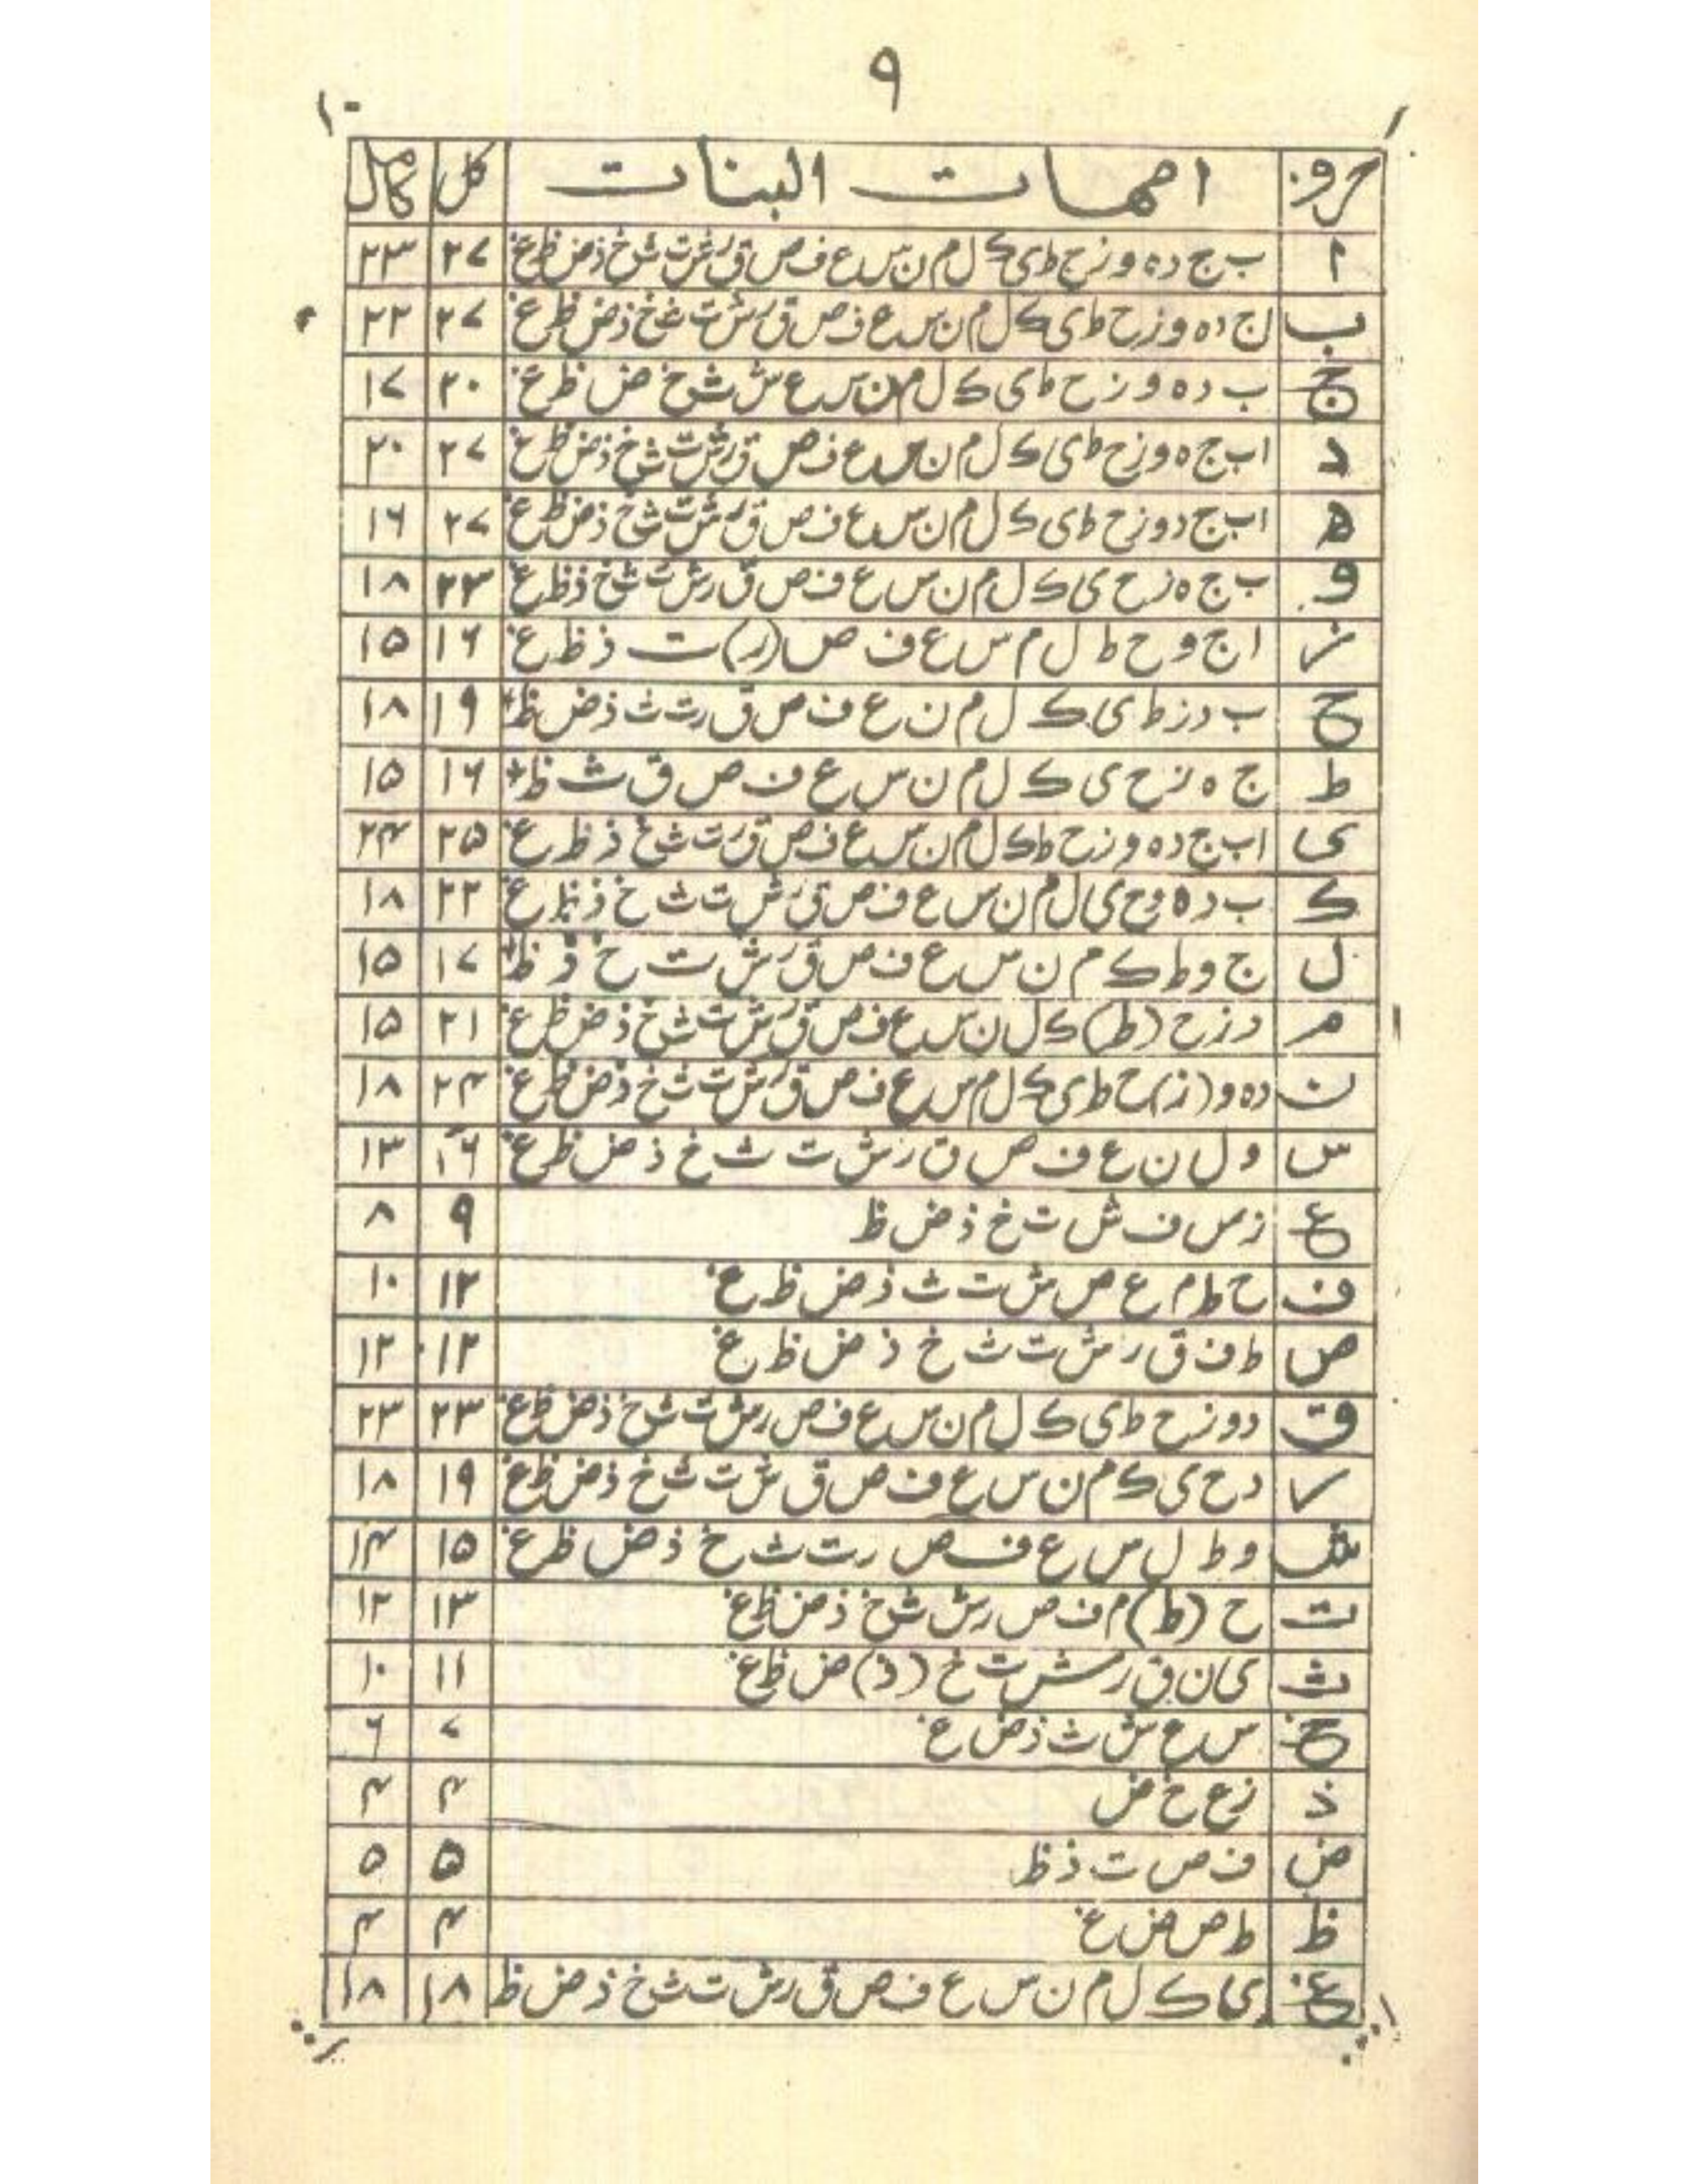 ۹
حروف امہات البنات کل کامل
ا ب ج د ہ و ز ح ط ی ک ل م ن س ع ف ص ق ر ش ت ث خ ذ ض ظ غ ۲۷ ۲۳
ب ا ج د ہ و ز ح ط ی ک ل م ن س ع ف ص ق ر ش ت ث خ ذ ض ظ غ ۲۷ ۲۲
ج ب د ہ و ز ح ط ی ک ل م ن س ع ش ث خ ض ظ غ ۲۰ ۱۷
د ا ب ج ہ و ز ح ط ی ک ل م ن س ع ف ص ق ر ش ت ث خ ذ ض ظ غ ۲۷ ۲۰
ہ ا ب ج د و ز ح ط ی ک ل م ن س ع ف ص ق ر ش ت ث خ ذ ض ظ غ ۲۷ ۱۶
و ب ج ہ ز ح ی ک ل م ن س ع ف ص ق ر ش ت ث خ ذ ظ غ ۲۳ ۱۸
ز ا ج و ح ط ل م س ع ف ص (ر) ت ذ ظ غ ۱۶ ۱۵
ح ب د ز ط ی ک ل م ن ع ف ص ق ر ت ث ذ ض ظ ۱۹ ۱۸
ط ج ہ ز ح ی ک ل م ن س ع ف ص ق ث ظ ۱۶ ۱۵
ی ا ب ج د ہ و ز ح ط ک ل م ن س ع ف ص ق ر ت ث خ ذ ظ غ ۲۵ ۲۴
ک ب د ہ و ح ی ل م ن س ع ف ص ق ر ش ت ث خ ذ ظ غ ۲۲ ۱۸
ل ج و ط ک م ن س ع ف ص ق ر ش ت خ ذ ظ ۱۷ ۱۵
م د ز ح (ط) ک ل ن س ع ف ص ق ر ش ت ث خ ذ ض ظ غ ۲۱ ۱۵
ن د ہ و (ز) ح ط ی ک ل م س ع ف ص ق ر ش ت ث خ ذ ض ظ غ ۲۴ ۱۸
س و ل ن ع ف ص ق ر ش ت ث خ ذ ض ظ غ ۱۶ ۱۳
ع ز س ف ش ت خ ذ ض ظ ۹ ۸
ف ح ط م ع ص ش ت ث ذ ض ظ غ ۱۲ ۱۰
ص ط ف ق ر ش ت ث خ ذ ض ظ غ ۱۲ ۱۲
ق د و ز ح ط ی ک ل م ن س ع ف ص ر ش ت ث خ ذ ض ظ غ ۲۳ ۲۳
ر د ح ی ک م ن س ع ف ص ق ش ت ث خ ذ ض ظ غ ۱۹ ۱۸
ش و ط ل س ع ف ص ر ت ث خ ذ ض ظ غ ۱۵ ۱۴
ت ح (ط) م ف ص ر ش ث خ ذ ض ظ غ ۱۳ ۱۲
ث ی ن ق ر ش ت خ (ذ) ض ظ غ ۱۱ ۱۰
خ س ع ش ث ذ ض غ ۷ ۶
ذ ز ع خ ض ۴ ۴
ض ف ص ت ذ ظ ۵ ۵
ظ ط ص ض غ ۴ ۴
غ ی ک ل م ن س ع ف ص ق ر ش ت ث خ ذ ض ظ ۱۸ ۱۸